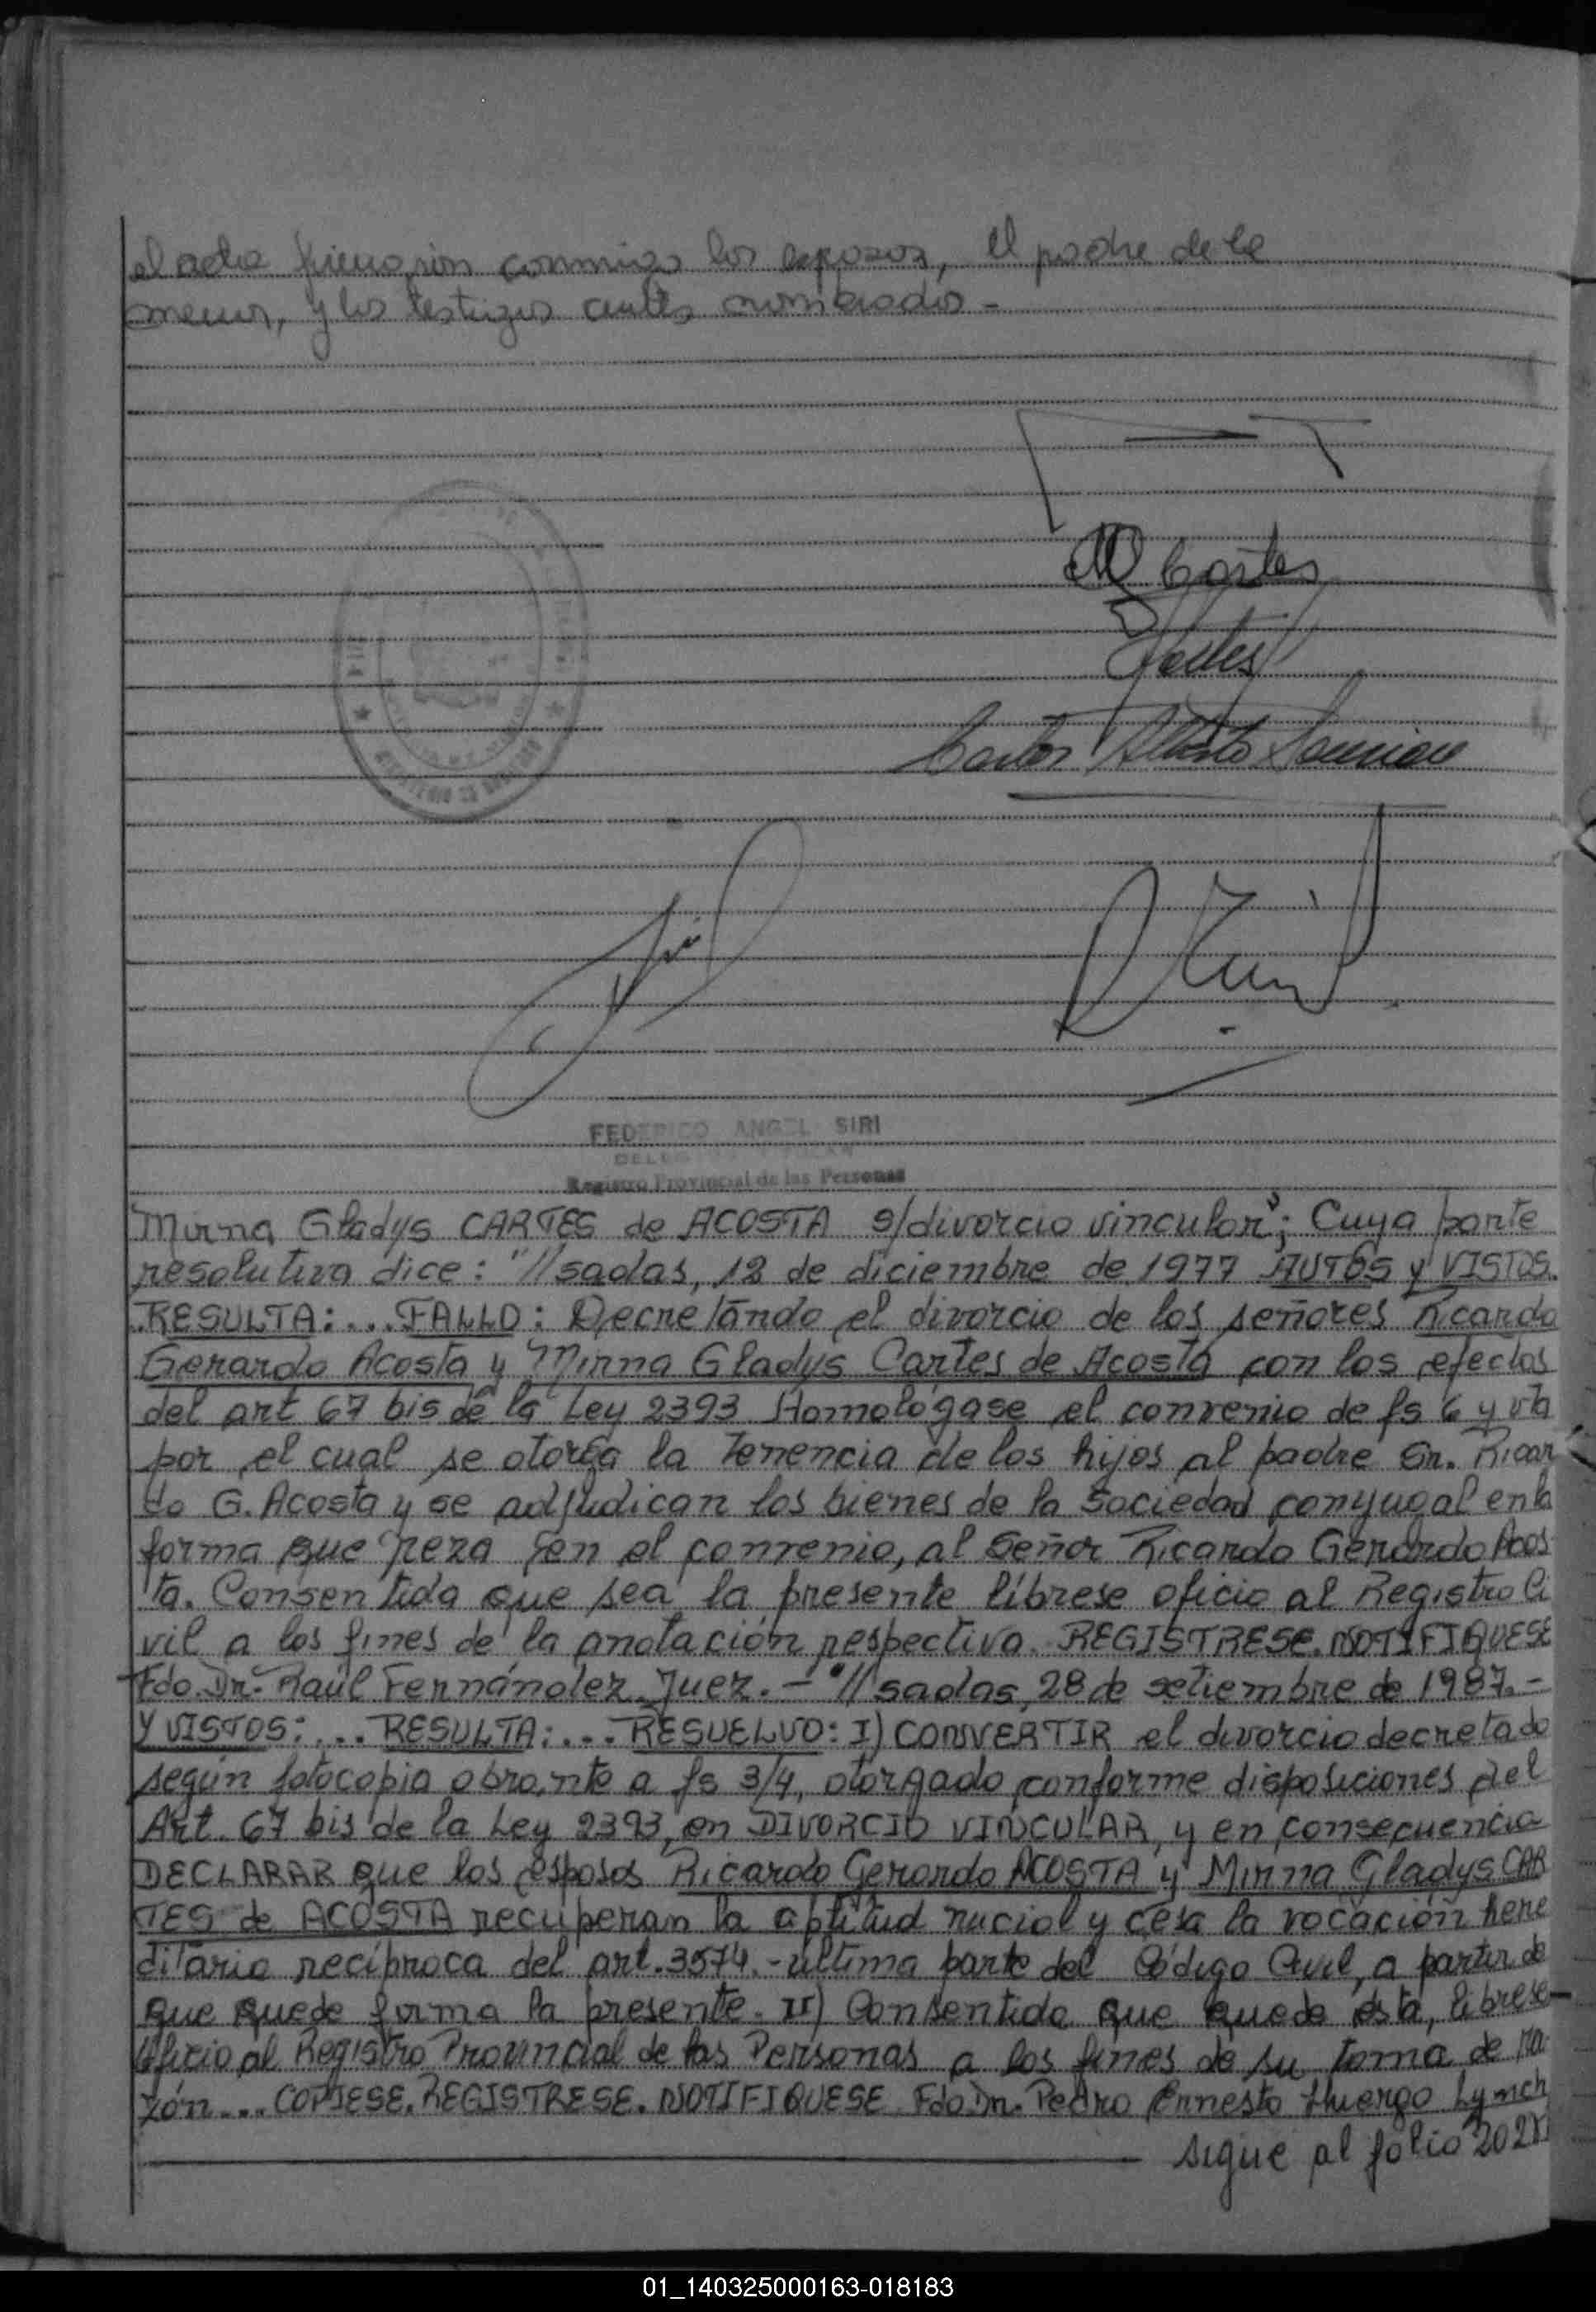 el acta firmaron conmigo los esposos, el padre de la
menor, y los testigos antes nombrados-
M Cartes
Cartes
Carlos Alberto
FEDERICO ANGEL SIRI
Registro Provincial de las Personas
Mirna Gladys CARTES de ACOSTA s/divorcio vincular"; Cuya parte
resolutiva dice: "//sadas, 12 de diciembre de 1977 AUTOS y VISTOS.
RESULTA:... FALLO: Decretando el divorcio de los señores Ricardo
Gerardo Acosta y Mirna Gladys Cartes de Acosta con los efectos
del art 67 bis de la Ley 2393 Homológase el convenio de fs 6 y vta
por el cual se otorga la tenencia de los hijos al padre Sr. Ricar
do G. Acosta y se adjudican los bienes de la sociedad conyugal en la
forma que reza en el convenio, al Señor Ricardo Gerardo Acos
ta. Consentida que sea la presente líbrese oficio al Registro Ci
vil a los fines de la anotación respectiva. REGISTRESE. NOTIFIQUESE
Fdo. Dr. Raúl Fernández. Juez.- "//sadas, 28 de setiembre de 1987.-
Y VISTOS:... RESULTA:... RESUELVO: I) CONVERTIR el divorcio decretado
según fotocopia obrante a fs 3/4, otorgado conforme disposiciones del
Art. 67 bis de la Ley 2393, en DIVORCIO VINCULAR, y en consecuencia
DECLARAR que los esposos Ricardo Gerardo ACOSTA y Mirna Gladys CAR
TES de ACOSTA recuperan la aptitud nucial y cesa la vocación here
ditaria recíproca del art. 3574.- última parte del Código Civil, a partir de
que quede firma la presente. II) Consentida que quede ésta, líbrese-
Oficio al Registro Provincial de las Personas a los fines de su toma de ra
zón... COPIESE. REGISTRESE. NOTIFIQUESE. Fdo. Dr. Pedro Ernesto Huergo Lynch
sigue al folio 202
01_140325000163-018183